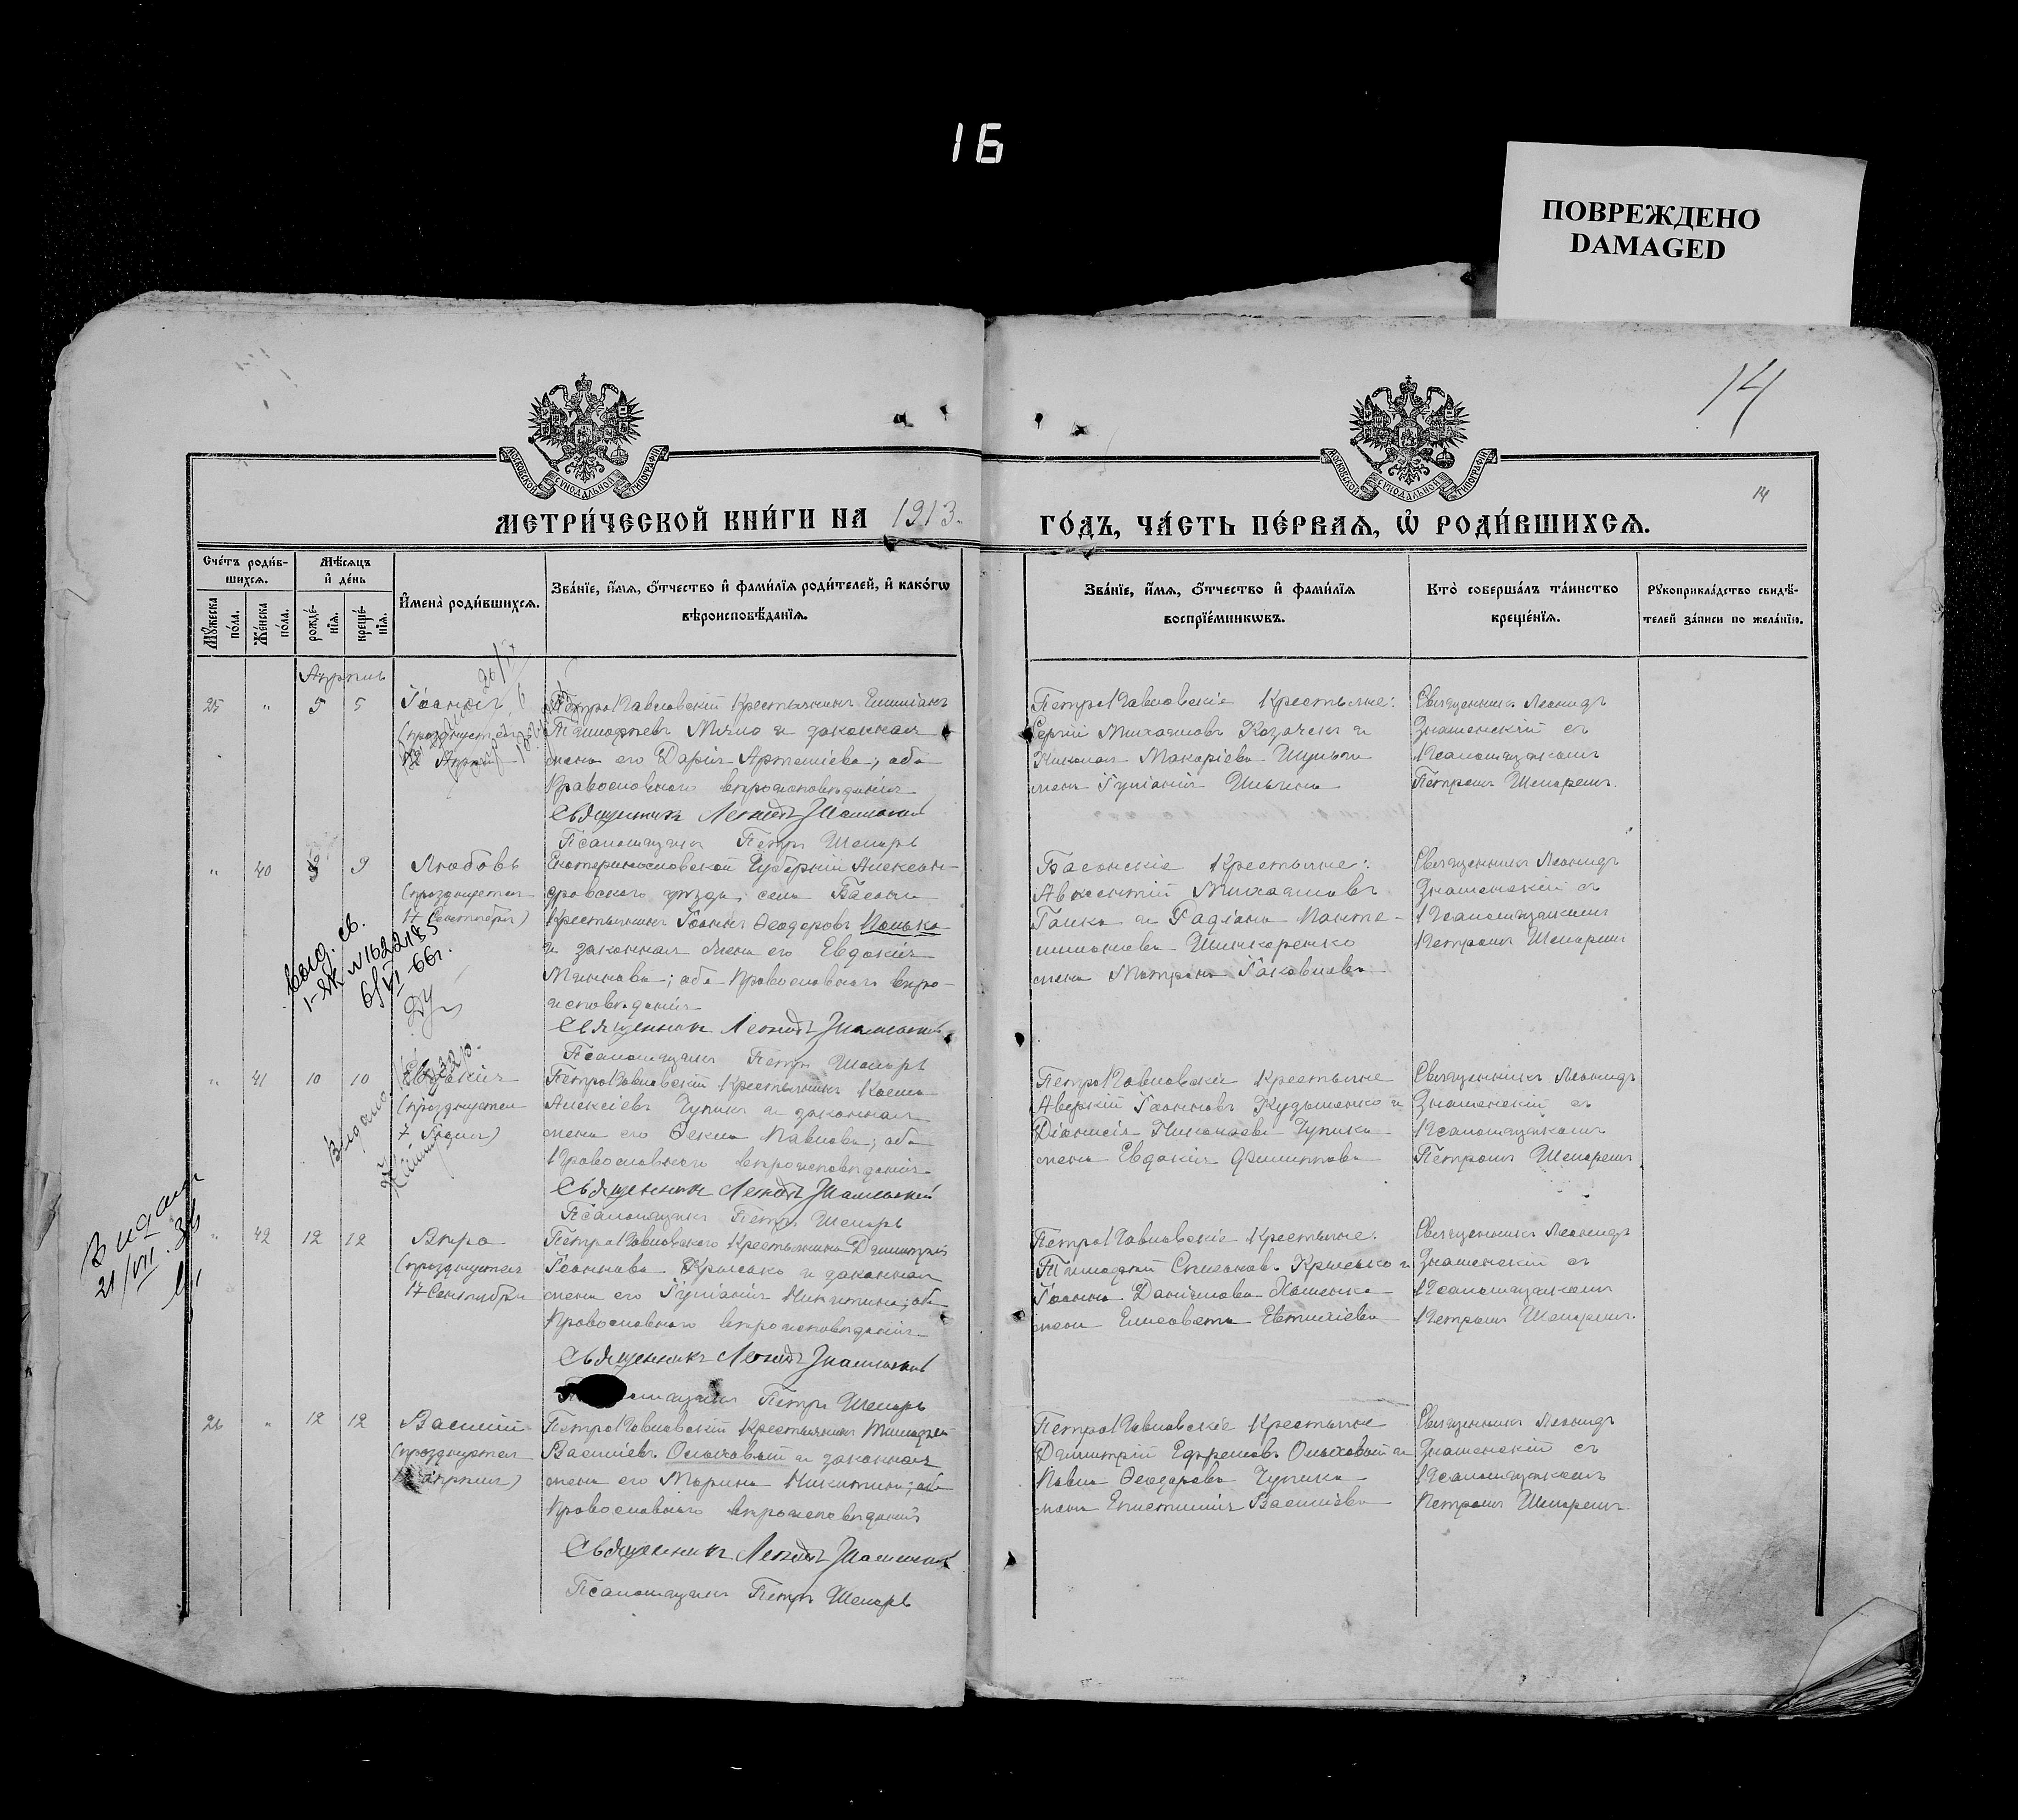 16
ПОВРЕЖДЕНО
DAMAGED
14
14
МОСКОВСКОЙ СУНОДАЛЬНОЙ ТИПОГРАФІИ
МОСКОВСКОЙ СУНОДАЛЬНОЙ ТИПОГРАФІИ
МЕТРИ́ЧЕСКОЙ КНИ́ГИ НА 1913.
ГО́ДЪ, ЧА́СТЬ ПЕ́РВАѦ, Ѡ РОДИ́ВШИХСѦ.
Сче́тъ роди́в-
шихсѧ.
Мꙋ́жеска
по́ла.
Же́нска
по́ла.
Мѣ́сѧцъ
и҆ де́нь
рожде́-
нїѧ.
креще́-
нїѧ.
И҆мена̀ роди́вшихсѧ.
Зва́нїе, и҆́мѧ, ѻ҆́тчество и҆ фами́лїѧ роди́телей, и҆ како́гѡ
вѣроисповѣ́данїѧ.
Зва́нїе, и҆́мѧ, ѻ҆́тчество и҆ фами́лїѧ
воспрїе́мникѡвъ.
Кто̀ соверша́лъ та́инство
креще́нїѧ.
Рꙋкоприкла́дство свидѣ́-
телей за́писи по жела́нїю.
Апрѣль
25 " 5 5 Іоаннъ
(празднуется
12 Апрѣля
ПетроПавловскій Крестьянинъ
Тимофеевъ и законная
жена его Дарія Артеміева; оба
Православнаго вѣроисповѣданія
Священникъ Леонидъ Знаменскій
Псаломщикъ Петръ Шепарь
ПетроПавловскіе Крестьяне:
Сергій Михаиловъ Козаченъ и
Николая Макаріева
жена Гликерія
Священникъ Леонидъ
Знаменскій съ
Псаломщикомъ
Петромъ Шепаремъ.
" 40 9 9 Любовь
(празднуется
17 Сентября)
Екатеринославской Губерніи Александ-
ровскаго уѣзда, села Басани
Крестьянинъ Іоаннъ Ѳеодоровъ
и законная жена его Евдокія
оба Православнаго вѣро-
исповѣданія
Священникъ Леонидъ Знаменскій
Псаломщикъ Петръ Шепарь
Басанскіе Крестьяне:
Авксентій Михаиловъ
Галка и Панте-
Шинкаренко
жена Матрона Іаковлева
Священникъ Леонидъ
Знаменскій съ
Псаломщикомъ
Петромъ Шепаремъ
выд. св.
I-ЯК N1622185
6/VI-66г.
" 41 10 10 Евдокія
(празднуется
7
ПетроПавловскій Крестьянинъ Косма
Алексіевъ Чупикъ и законная
жена его Ѳекла Павлова; оба
Православнаго вѣроисповѣданія
Священникъ Леонидъ Знаменскій
Псаломщикъ Петръ Шепарь
ПетроПавловскіе Крестьяне
Аверкій Іоанновъ Кузьменко и
Діонисія Николаева Чупика
жена Евдокія Филиппова
Священникъ Леонидъ
Знаменскій съ
Псаломщикомъ
Петромъ Шепаремъ
Видано
21/VII 36
" 42 12 12 Вѣра
(празднуется
17 Сентября
ПетроПавловскаго Крестьянина Димитрія
Іоаннова и законная
жена его Гликерія Никитина; оба
Православнаго вѣроисповѣданія
Священникъ Леонидъ Знаменскій
Петръ Шепарь
ПетроПавловскіе Крестьяне:
Тимофей и
Іоанна Даніилова
жена Елисавета Евтихіева
Священникъ Леонидъ
Знаменскій съ
Псаломщикомъ
Петромъ Шепаремъ.
26 " 12 12 Василій
(празднуется
12 апрѣля)
ПетроПавловскій Крестьянинъ Тимофей
Василіевъ Ольховый и законная
жена его Марина Никитина; оба
Православнаго вѣроисповѣданія
Священникъ Леонидъ Знаменскій
Псаломщикъ Петръ Шепарь
ПетроПавловскіе Крестьяне
Димитрій Ефремовъ Ольховый и
Павла Ѳеодорова Чупика
жена Епистимія Василіева
Священникъ Леонидъ
Знаменскій съ
Псаломщикомъ
Петромъ Шепаремъ